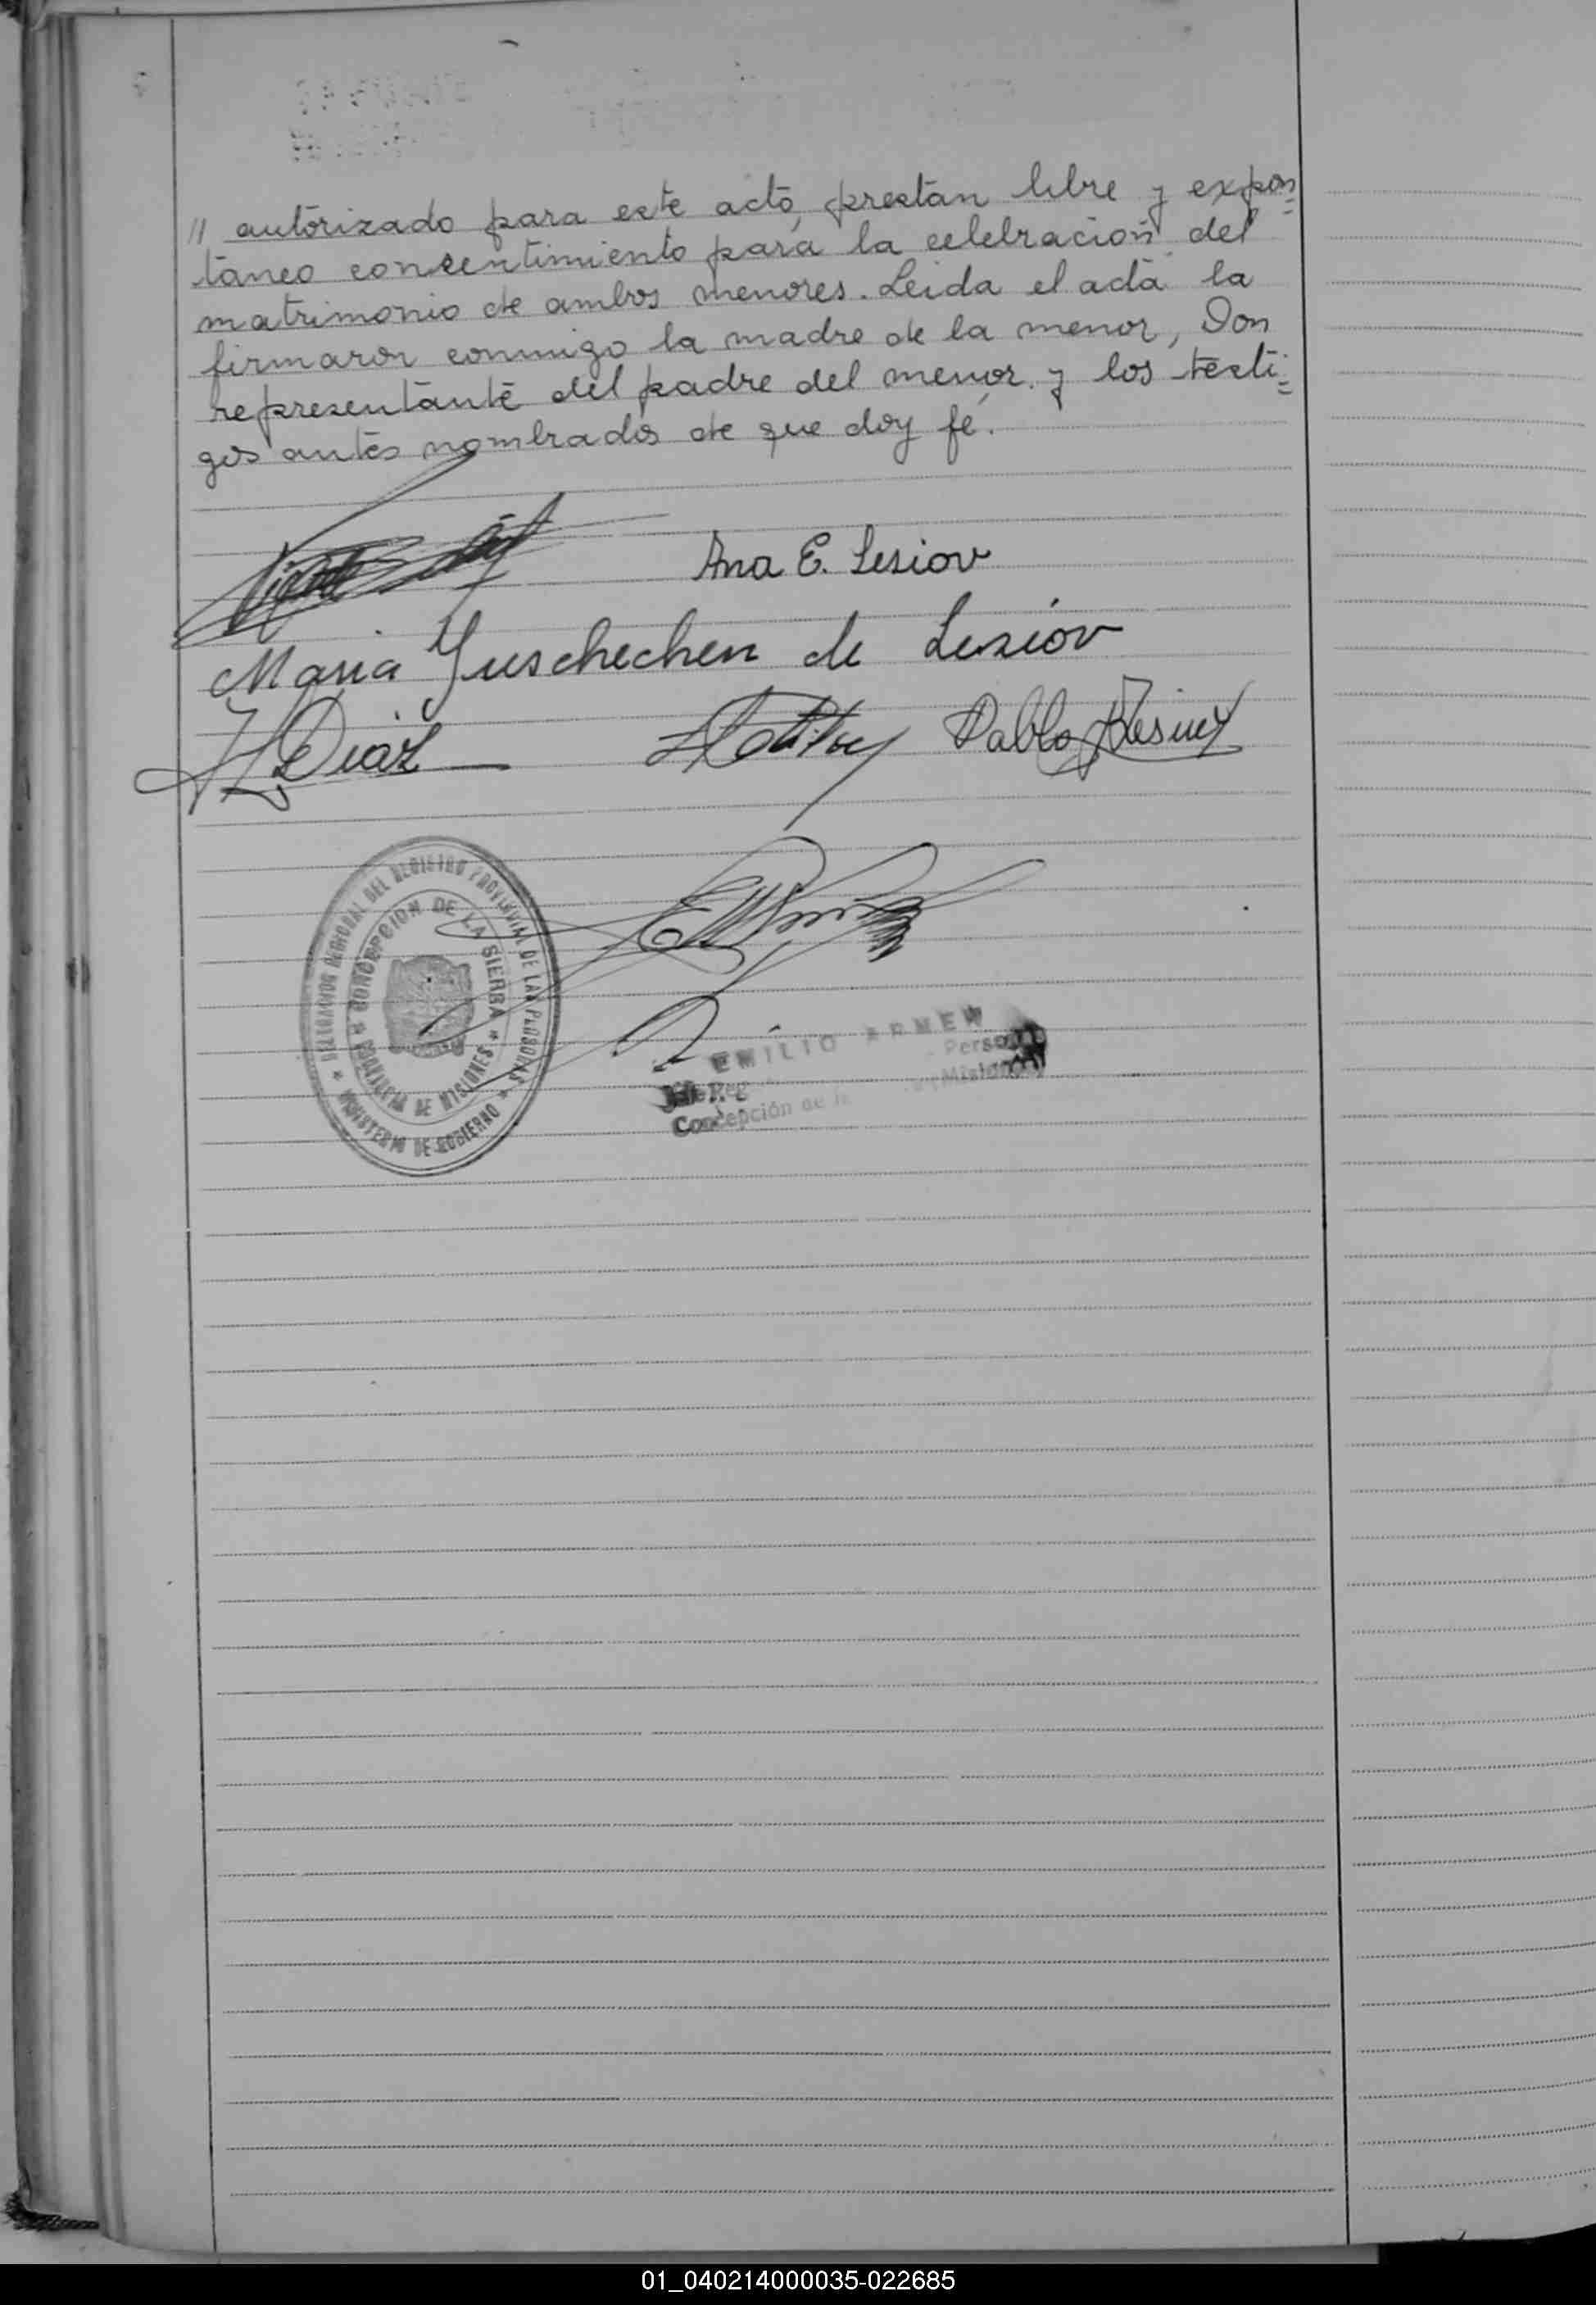 // autorizado para este acto, prestan libre y expon=
taneo consentimiento para la celebracion del
matrimonio de ambos menores. Leida el acta la
firmaron conmigo la madre de la menor, Don
representante del padre del menor. y los testi=
gos antes nombrados de que doy fé.
Ana E. Lesiov
Maria Juschechen de Lesiov
Diaz
Pablo
DELEGACION REGIONAL DEL REGISTRO PROVINCIAL DE LAS PERSONAS
CONCEPCION DE LA SIERRA
PROVINCIA DE MISIONES
MINISTERIO DE GOBIERNO
EMILIO
Jefe Reg Person
Concepción de Misiones
01_040214000035-022685